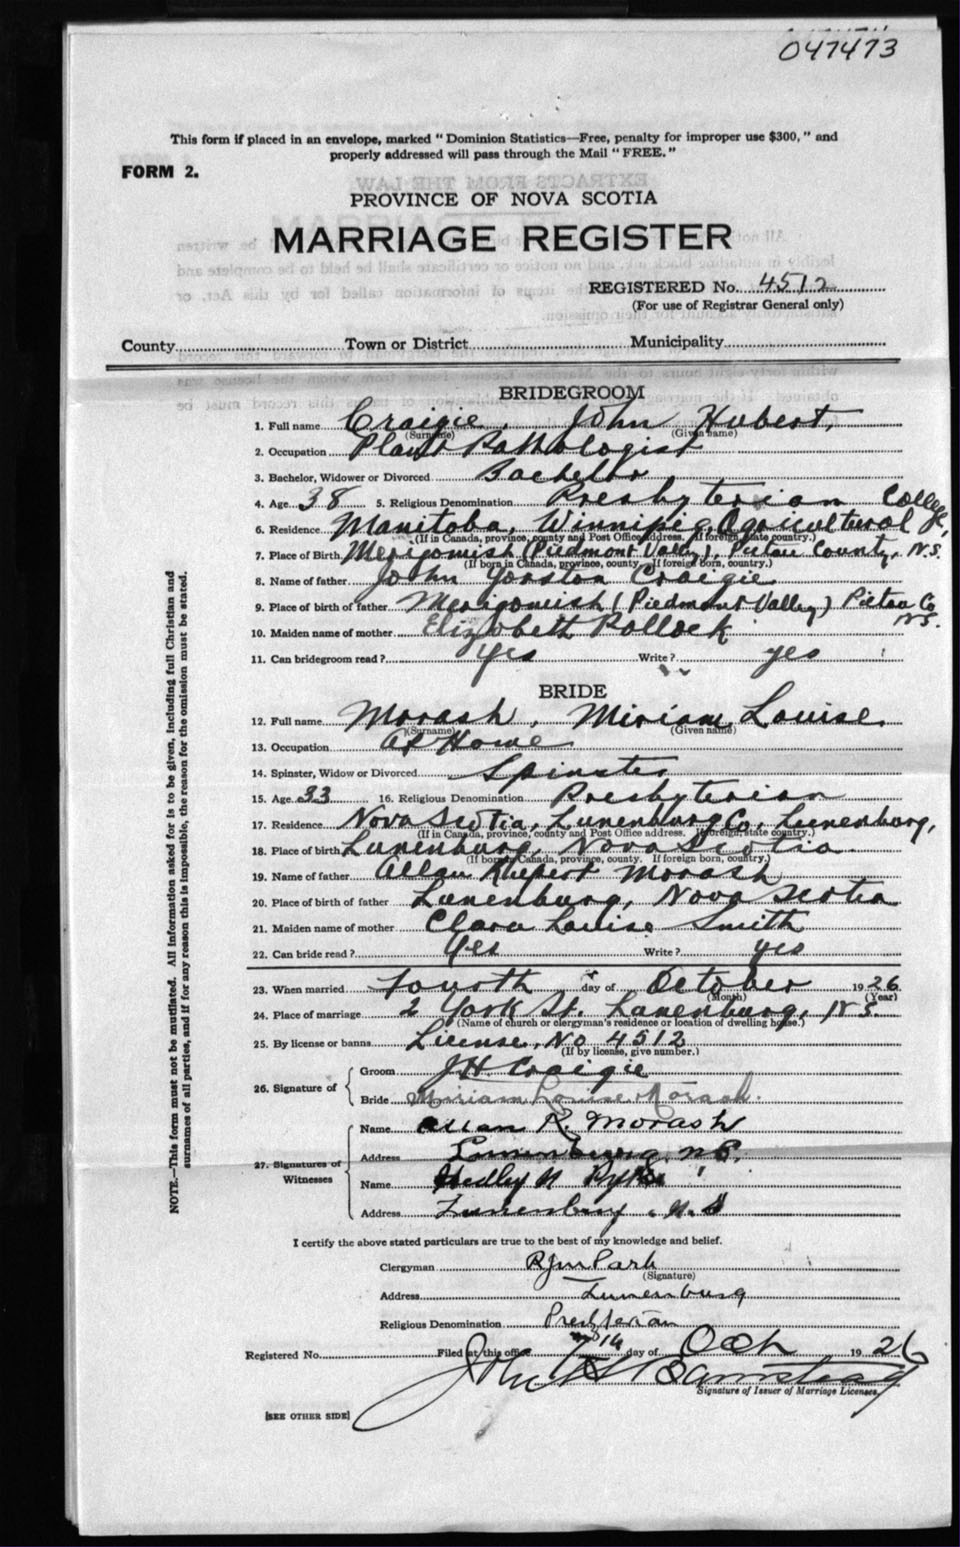 047473
This form if placed in an envelope, marked "Dominion Statistics—Free, penalty for improper use $300," and
properly addressed will pass through the Mail "FREE."
FORM 2.
PROVINCE OF NOVA SCOTIA
MARRIAGE REGISTER
REGISTERED No. 4512
(For use of Registrar General only)
County Town or District Municipality
BRIDEGROOM
1. Full name Craigie, John Hubert,
(Surname) (Given name)
2. Occupation Plant Pathologist
3. Bachelor, Widower or Divorced Bachelor
4. Age 38 5. Religious Denomination Presbyterian
6. Residence Manitoba, Winnipeg, Agricultural College,
(If in Canada, province, county and Post Office address. If foreign, state country.)
7. Place of Birth Merigomish (Piedmont Valley), Pictou County, N.S.
(If born in Canada, province, county. If foreign born, country.)
8. Name of father John Yorston Craigie
9. Place of birth of father Merigomish (Piedmont Valley) Pictou Co N.S.
10. Maiden name of mother Elizabeth Pollock
11. Can bridegroom read? Yes Write? yes
BRIDE
12. Full name Morash, Miriam Louise
(Surname) (Given name)
13. Occupation At Home
14. Spinster, Widow or Divorced Spinster
15. Age 33 16. Religious Denomination Presbyterian
17. Residence Nova Scotia, Lunenburg Co, Lunenburg,
(If in Canada, province, county and Post Office address. If foreign, state country.)
18. Place of birth Lunenburg, Nova Scotia
(If born in Canada, province, county. If foreign born, country.)
19. Name of father Allan Rupert Morash
20. Place of birth of father Lunenburg, Nova Scotia
21. Maiden name of mother Clara Louise Smith
22. Can bride read? Yes Write? yes
23. When married fourth day of October 1926
(Month) (Year)
24. Place of marriage 2 York St. Lunenburg, N.S.
(Name of church or clergyman's residence or location of dwelling house.)
25. By license or banns License, No 4512
(If by license, give number.)
26. Signature of Groom J H Craigie
Bride Miriam Louise Morash.
27. Signatures of Witnesses
Name Allan R. Morash
Address Lunenburg, N.S.
Name Hedley N
Address Lunenburg, N.S
I certify the above stated particulars are true to the best of my knowledge and belief.
Clergyman Park
(Signature)
Address Lunenburg
Religious Denomination Presbyterian
Registered No. Filed at this office day of Oct 1926
John
Signature of Issuer of Marriage Licenses.
[SEE OTHER SIDE]
NOTE.—This form must not be mutilated. All information asked for is to be given, including full Christian and
surnames of all parties, and if for any reason this is impossible, the reason for the omission must be stated.